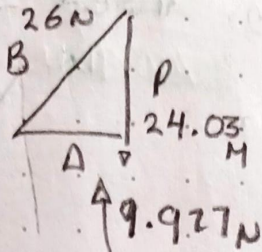 26N
B
P
24.03
M
A
9.927N